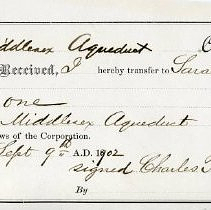 Middlesex Aqueduct C
Received, I hereby transfer to Sara
one
Middlesex Aqueduct
ws of the Corporation.
Sept 9th A.D. 1902
signed Charles
By